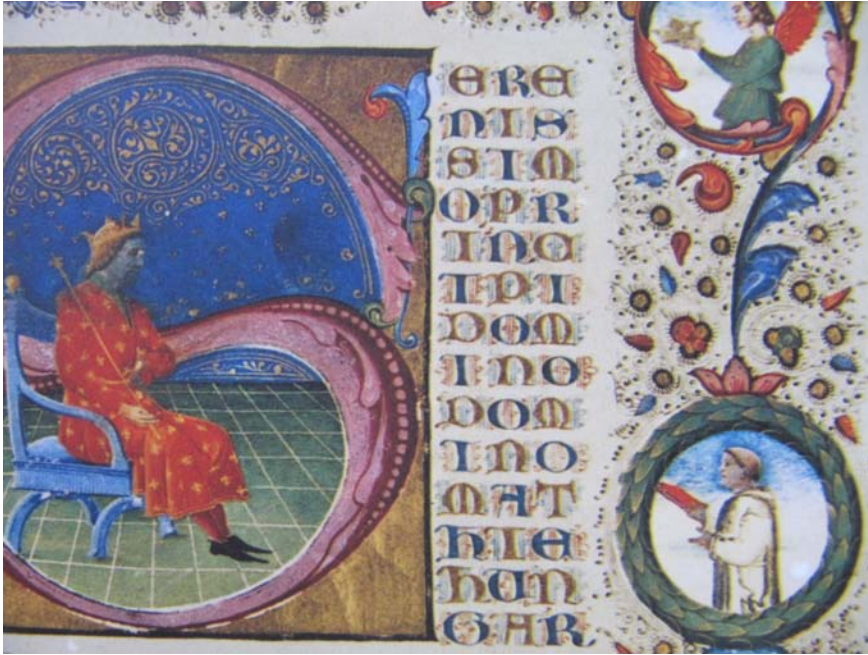 ERE
NIS
SIM
OPR
INC
IPI
DOM
INO
DOM
INO
MAT
HIE
HUN
GAR